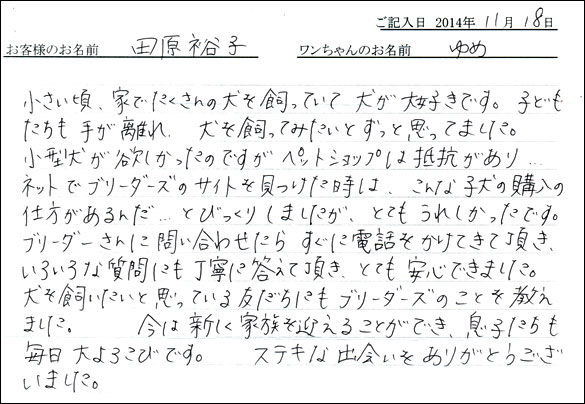 ご記入日 2014年 11月 18日
お客様のお名前 田原裕子 ワンちゃんのお名前 ゆめ
小さい頃、家でたくさんの犬を飼っていて 犬が 大好きです。子ども
たちも 手が離れ、 犬を飼ってみたいと ずっと思ってました。
小型犬が欲しかったのですが ペットショップは 抵抗があり…
ネットで ブリーダーズのサイトを見つけた時は、 こんな子犬の購入の
仕方があるんだ… と びっくりしましたが、とても うれしかったです。
ブリーダーさんに 問い合わせたら すぐに電話をかけてきて頂き、
いろいろな質問にも 丁寧に答えて頂き、とても 安心できました。
犬を飼いたいと思っている友だちにも ブリーダーズのことを教え
ました。 今は 新しく 家族を迎えることができ、息子たちも
毎日 大よろこびです。 ステキな 出会いを ありがとうござ
いました。